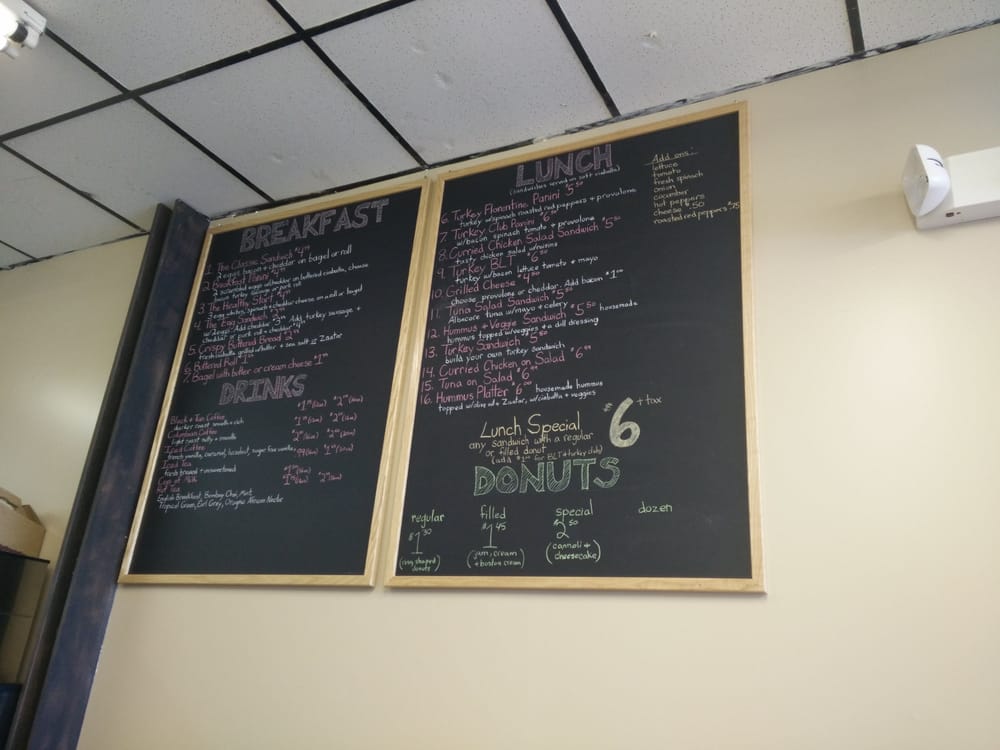 BREAKFAST
1. The Classic Sandwich $4
2 eggs bacon + cheddar on bagel or roll
2. Breakfast Panini
2 scrambled eggs w/cheddar on buttered ciabatta, choose
bacon turkey sausage or pork roll
3. The Healthy Start
3 egg whites, spinach + cheddar cheese on a roll or bagel
4. The Egg Sandwich
w/2 eggs. Add cheddar Add turkey sausage +
cheddar or pork roll + cheddar
5. Crispy Buttered Bread
fresh ciabatta grilled w/butter + sea salt or Zaatar
6. Buttered Roll
7. Bagel with butter or cream cheese $1
DRINKS
Black + Tan Coffee
darker roast smooth + rich
Columbian Coffee
light roast nutty + smooth
Iced Coffee
french vanilla, caramel, hazelnut, sugar free vanilla
Iced Tea
fresh brewed + unsweetened
Cup of Milk
Hot Tea
English Breakfast, Bombay Chai, Mint
Tropical Green, Earl Grey, Organic African Nectar
LUNCH
(sandwiches served on soft ciabatta)
6. Turkey Florentine Panini $5.50
turkey w/spinach roasted red peppers + provolone
7. Turkey Club Panini $6.50
w/bacon spinach tomato + provolone
8. Curried Chicken Salad Sandwich $5
tasty chicken salad w/raisins
9. Turkey BLT $6.50
turkey w/bacon lettuce tomato + mayo
10. Grilled Cheese $4.50
choose provolone or cheddar. Add bacon $1.00
11. Tuna Salad Sandwich $5
Albacore tuna w/mayo + celery
12. Hummus + Veggie Sandwich $5.50 homemade
hummus topped w/veggies + a dill dressing
13. Turkey Sandwich $5
build your own turkey sandwich
14. Curried Chicken on Salad $6
15. Tuna on Salad $6
16. Hummus Platter $6.00 housemade hummus
topped w/olive oil + Zaatar, w/ciabatta + veggies
Add ons:
lettuce
tomato
fresh spinach
onion
cucumber
hot peppers
cheese $.50
roasted red peppers $.75
Lunch Special $6 + tax
any sandwich with a regular
or filled donut
(add $1.00 for BLT + turkey club)
DONUTS
regular filled special dozen
$1.30 $1.45 $2.50
(ring shaped donuts) (jam, cream + boston cream) (cannoli + cheesecake)